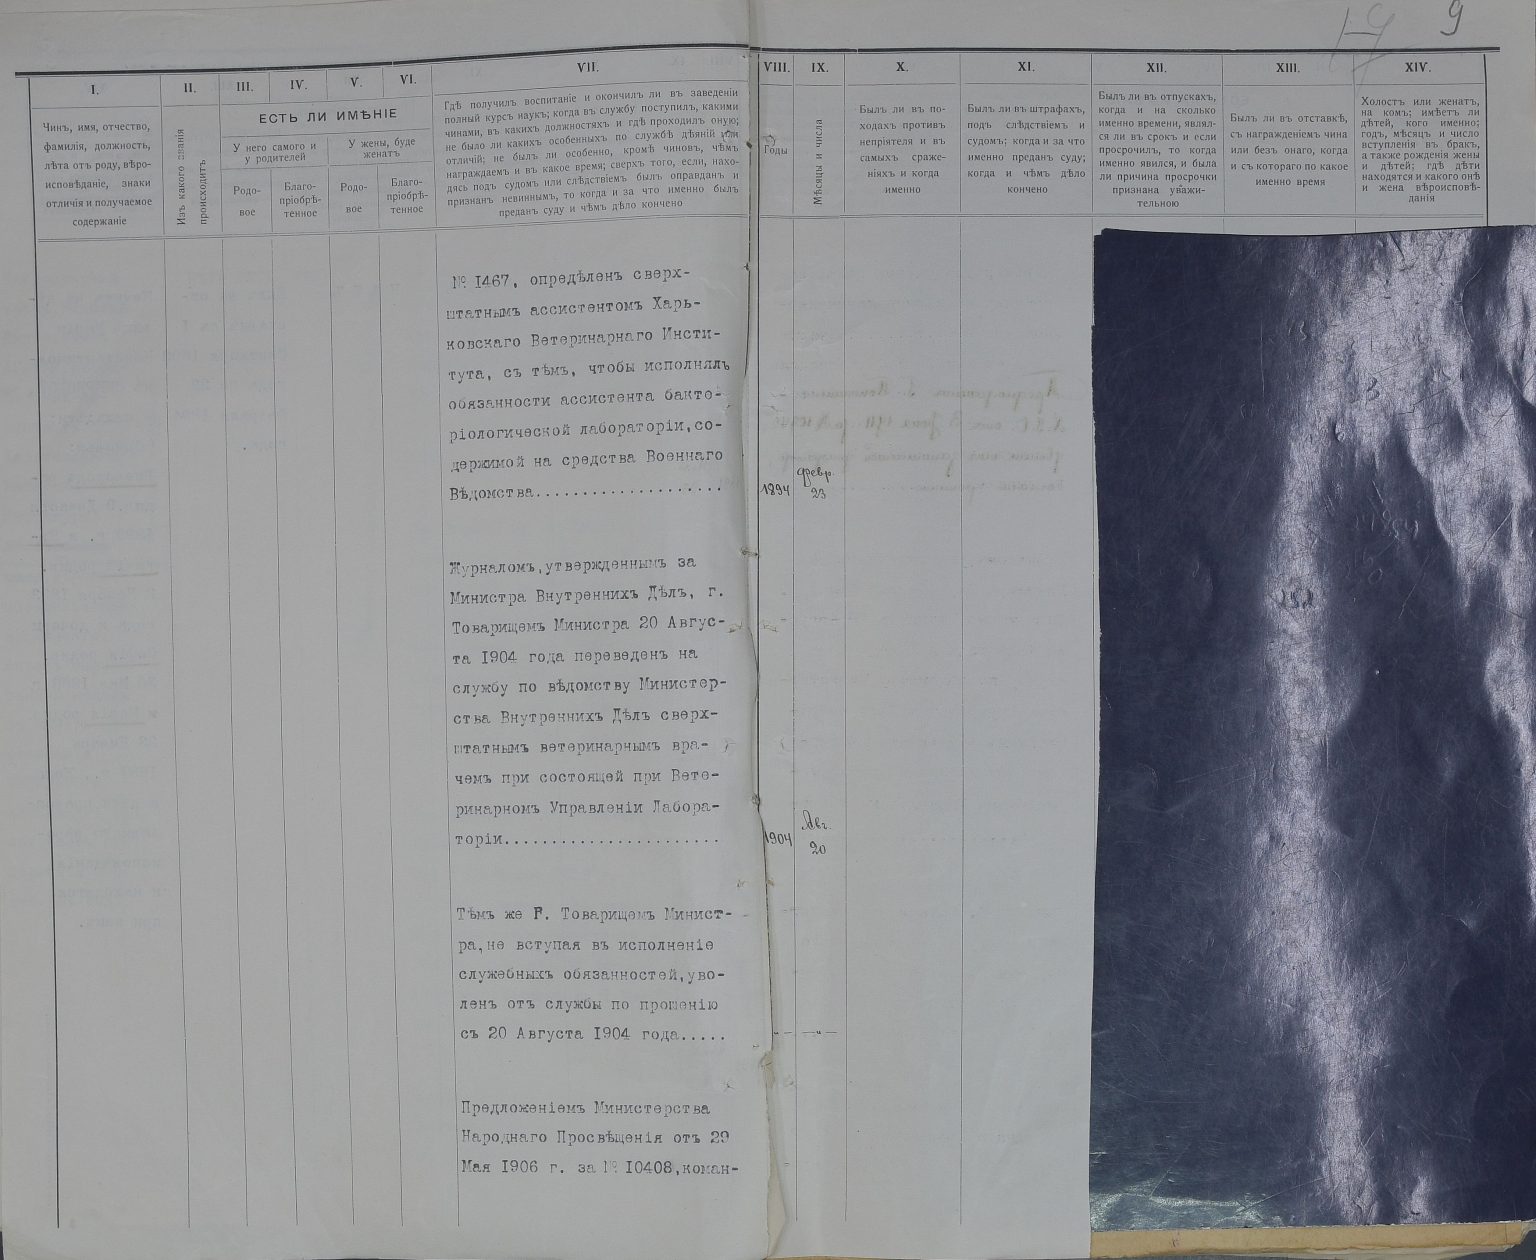 9
I.
II.
III.
IV.
V.
VI.
VII.
VIII.
IX.
X.
XI.
XII.
XIII.
XIV.
Чинъ, имя, отчество,
фамилія, должность,
лѣта отъ роду, вѣро-
исповѣданіе, знаки
отличія и получаемое
содержаніе
Изъ какого званія
происходитъ
ЕСТЬ ЛИ ИМѢНІЕ
У него самого и
у родителей
У жены, буде
женатъ
Родо-
вое
Благо-
пріобрѣ-
тенное
Родо-
вое
Благо-
пріобрѣ-
тенное
Гдѣ получилъ воспитаніе и окончилъ ли въ заведеніи
полный курсъ наукъ; когда въ службу поступилъ, какими
чинами, въ какихъ должностяхъ и гдѣ проходилъ оную;
не было ли какихъ особенныхъ по службѣ дѣяній или
отличій; не былъ ли особенно, кромѣ чиновъ, чѣмъ
награждаемъ и въ какое время; сверхъ того, если, нахо-
дясь подъ судомъ или слѣдствіемъ былъ оправданъ и
признанъ невиннымъ, то когда и за что именно былъ
преданъ суду и чѣмъ дѣло кончено
Годы
Мѣсяцы и числа
Былъ ли въ по-
ходахъ противъ
непріятеля и въ
самыхъ сраже-
ніяхъ и когда
именно
Былъ ли въ штрафахъ,
подъ слѣдствіемъ и
судомъ; когда и за что
именно преданъ суду;
когда и чѣмъ дѣло
кончено
Былъ ли въ отпускахъ,
когда и на сколько
именно времени, являл-
ся ли въ срокъ и если
просрочилъ, то когда
именно явился, и была
ли причина просрочки
признана уважи-
тельною
Былъ ли въ отставкѣ,
съ награжденіемъ чина
или безъ онаго, когда
и съ котораго по какое
именно время
Холостъ или женатъ,
на комъ; имѣетъ ли
дѣтей, кого именно;
годъ, мѣсяцъ и число
вступленія въ бракъ,
а также рожденія жены
и дѣтей: гдѣ дѣти
находятся и какого онѣ
и жена вѣроисповѣ-
данія
№ I467, опредѣленъ сверх-
штатнымъ ассистентомъ Харь-
ковскаго Ветеринарнаго Инсти-
тута, съ тѣмъ, чтобы исполнялъ
обязанности ассистента бакте-
ріологической лабораторіи,со-
держимой на средства Военнаго
Вѣдомства....................
1894
февр.
23
Журналомъ,утвержденнымъ за
Министра Внутреннихъ Дѣлъ, г.
Товарищемъ Министра 20 Авгус-
та I904 года переведенъ на
службу по вѣдомству Министер-
ства Внутреннихъ Дѣлъ сверх-
штатнымъ ветеринарнымъ вра-
чемъ при состоящей при Вете-
ринарномъ Управленіи Лабора-
торіи.......................
1904
Авг.
20
Тѣмъ же Г. Товарищемъ Минист-
ра,не вступая въ исполненіе
служебныхъ обязанностей,уво-
ленъ отъ службы по прошенію
съ 20 Августа I904 года.....
—"— —"—
Предложеніемъ Министерства
Народнаго Просвѣщенія отъ 29
Мая I906 г. за № I0408,коман-